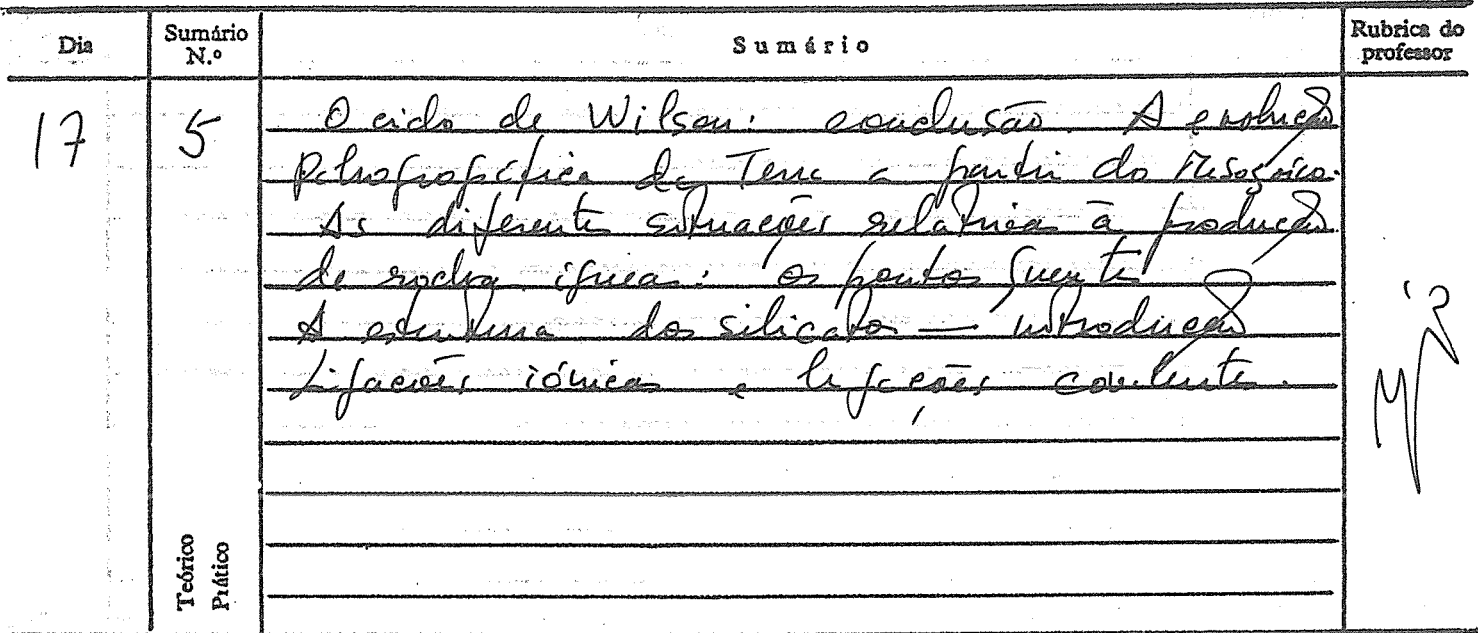 Dia
Sumário N.º
Sumário
Rubrica do professor
17
5
O ciclo de Wilson: conclusão. A evolução
da Terra a partir do Mesozóico.
As diferentes situações relativas à produção
de rochas ígneas: os pontos quentes
A estrutura dos silicatos — introdução
Ligações iónicas e ligações covalentes.
Teórico
Prático